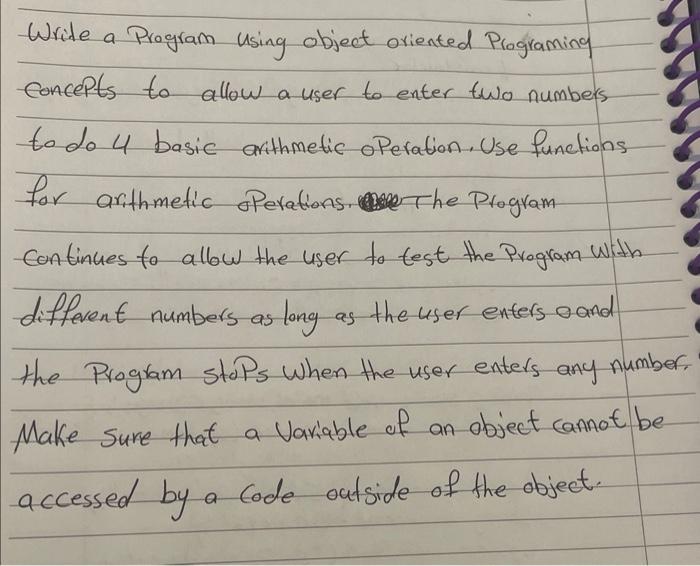 Write a Program using object oriented Programing
Concepts to allow a user to enter two numbers
to do 4 basic arithmetic operation. Use functions
for arithmetic operations. The Program
Continues to allow the user to test the Program With
different numbers as long as the user enters 0 and
the Program stops When the user enters any number.
Make sure that a Variable of an object cannot be
accessed by a Code outside of the object.